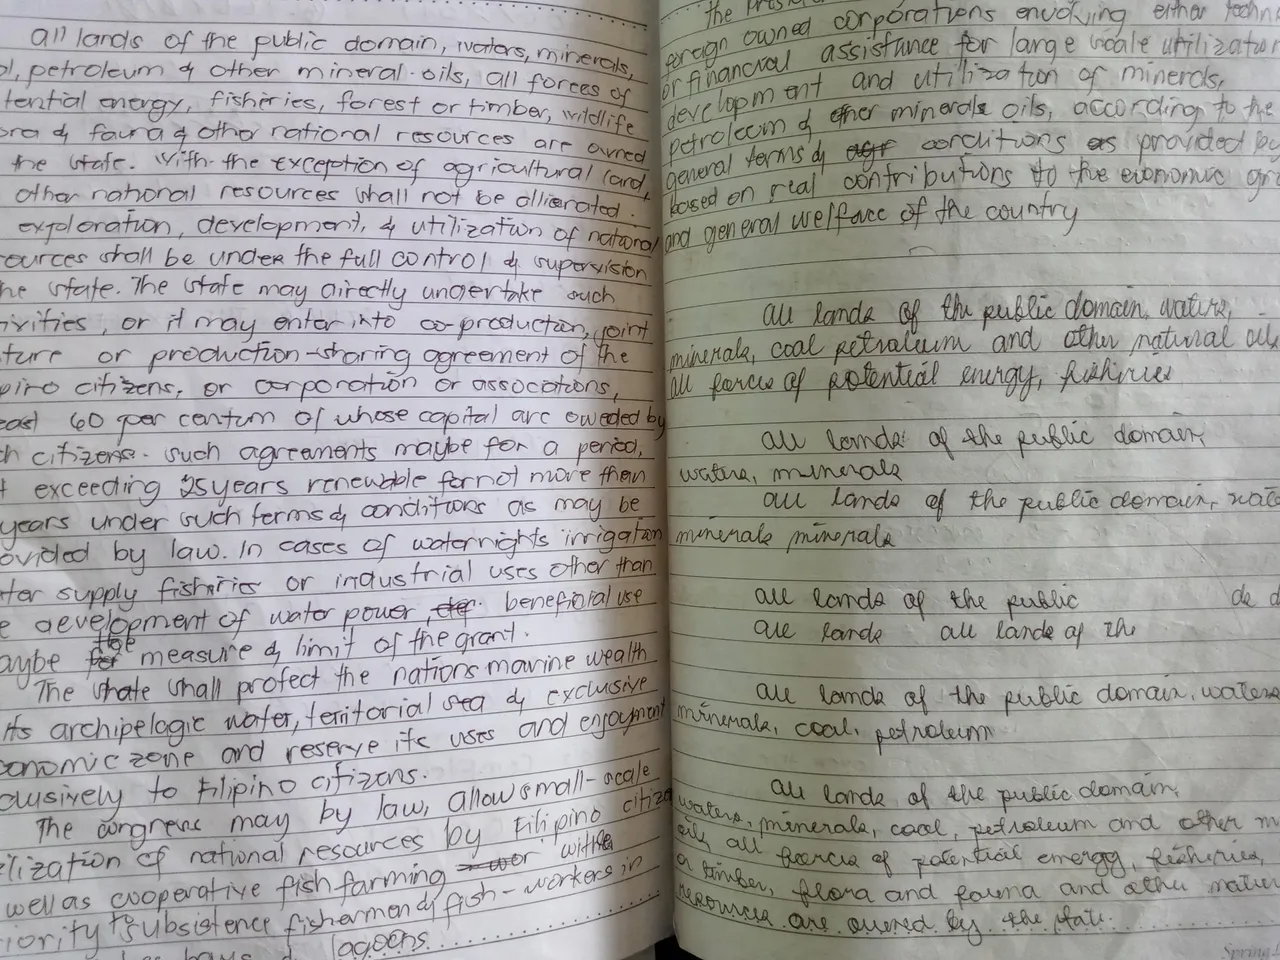 all lands of the public domain, waters, minerals,
petroleum & other mineral oils, all forces of
tential energy, fisheries, forest or timber, wildlife
ora & fauna & other national resources are owned
the state. With the exception of agricultural land,
other national resources shall not be allierated.
exploration, development, & utilization of national
ources shall be under the full control & supervision
he state. The state may directly undertake such
ivities, or it may enter into co-production, joint
ture or production-sharing agreement of the
pino citizens, or corporation or associations,
east 60 per centum of whose capital are oweded by
h citizens. such agreements maybe for a period,
t exceeding 25 years renewable for not more than
years under such terms & conditions as may be
ovided by law. In cases of water rights irrigation
ter supply fisheries or industrial uses other than
e development of water power, beneficial use
aybe the measure & limit of the grant.
The state shall protect the nations marine wealth
its archipelagic water, territorial sea & exclusive
onomic zone and reserve its uses and enjoyment
clusively to Filipino citizens.
The congress may by law, allow small-scale
ilization of national resources by Filipino citize
well as cooperative fish farming with
iority to subsistence fishermen & fish-workers in
lagoons
the
foreign owned corporations envoking either techni
or financial assistance for large scale utilization
development and utilization of minerals,
petroleum & other minerals oils, according to the
general terms & conditions as provided by
based on real contributions to the economic gro
and general welfare of the country
all lands of the public domain, waters,
minerals, coal petroleum and other natural oils
all forces of potential energy, fishiries
all lands of the public domain,
waters, minerals
all lands of the public domain, wate
minerals minerals
all lands of the public de d
all lands all lands of the
all lands of the public domain, waters
minerals, coal, petroleum
all lands of the public domain,
waters, minerals, coal, petroleum and other m
oils, all forces of potential energy, fishiries,
or timber, flora and fauna and other natur
resources are owned by the state.
Spring